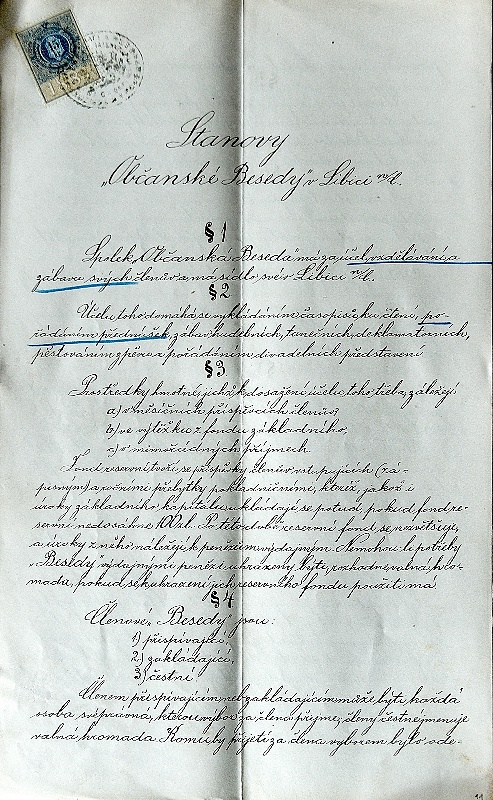 1883
Stanovy
„Občanské Besedy" v Libici n/C.
§ 1
Spolek „Občanská Beseda" má za účel, vzdělávání a
zábavu svých členův a má sídlo své v Libici n/C.
§ 2
Účelu toho domáhá se vykládáním časopisů ku čtení, po-
řádáním přednášek, zábav hudebních, tanečních, deklamatorních,
pěstováním zpěvu a pořádáním divadelních představení
§ 3
Prostředky hmotné, jichž k dosažení účelu toho třeba, záležejí
a) v měsíčních příspěvcích členův,
b) ve výtěžku z fondu základního,
c) v mimořádných příjmech.
Fond reservní tvoří se příspěvky členův vstupujících (zá-
pisným) a ročními přebytky pokladničními, kteréž, jakož i
úroky základního kapitálu ukládají se potud, pokud fond re-
servní nedosáhne 100 zl. Po této době reservní fond se nezvětšuje,
a úroky z něho náležejí k penězům výdajným. Nemohou-li potřeby
„Besedy" výdajnými penězi uhrazeny býti, rozhodne valná hro-
mada, pokud se k uhrazení jich reservního fondu použíti má.
§ 4
Členové „Besedy" jsou:
1) přispívající,
2) zakládající,
3) čestní
Členem přispívajícím neb zakládajícím může býti každá
osoba svéprávná, kterou výbor za člena přijme; členy čestné jmenuje
valná hromada. Komu by přijetí za člena výborem bylo ode-